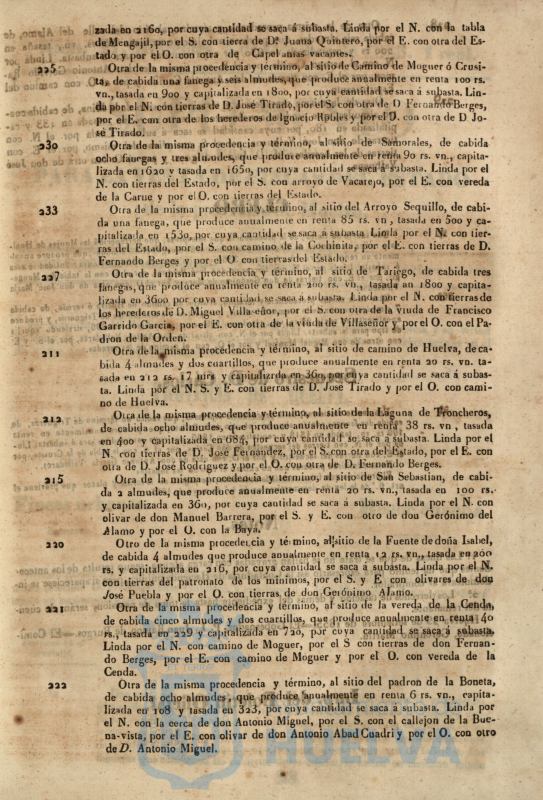 zada en 2160, por cuya cantidad se saca á subasta. Linda por el N. con la tabla
de Mengajil, por el S. con tierra de Dª. Juana Quintero, por el E. con otra del Es-
tado y por el O. con otra de Capellanias vacantes.
225 Otra de la misma procedencia y término, al sitio de Camino de Moguer ó Crusi-
ta, de cabida una fanega y seis almudes, que produce anualmente en renta 100 rs.
vn., tasada en 900 y capitalizada en 1800, por cuya cantidad se saca á subasta. Lin-
da por el N. con tierras de D. José Tirado, por el S. con otra de D Fernando Berges,
por el E. con otra de los herederos de Ignacio Robles y por el D. con otra de D Jo-
sé Tirado.
230 Otra de la misma procedencia y término, al sitio de Samorales, de cabida
ocho fanegas y tres almudes, que produce anualmente en renta 90 rs. vn., capita-
lizada en 1620 y tasada en 1650, por cuya cantidad se saca á subasta. Linda por el
N. con tierras del Estado, por el S. con arroyo de Vacarejo, por el E. con vereda
de la Carne y por el O. con tierras del Estado.
233 Otra de la misma procedencia y término, al sitio del Arroyo Sequillo, de cabi-
da una fanega, que produce anualmente en renta 85 rs. vn , tasada en 500 y ca-
pitalizada en 1530, por cuya cantidad se saca á subasta Linda por el N. con tier-
ras del Estado, por el S. con camino de la Cochinita, por el E. con tierras de D.
Fernando Berges y por el O con tierras del Estado.
227 Otra de la misma procedencia y término, al sitio de Tariego, de cabida tres
fanegas, que produce anualmente en renta 200 rs. vn., tasada an 1800 y capita-
lizada en 3600 por cuya cantidad se saca á subasta. Linda por el N. con tierras de
los herederos de D. Miguel Villaseñor, por el S. con otra de la viuda de Francisco
Garrido Garcia, por el E. con otra de la viuda de Villaseñor y por el O. con el Pa-
dron de la Orden.
211 Otra de la misma procedencia y término, al sitio de camino de Huelva, de ca-
bida 4 almudes y dos cuartillos, que produce anualmente en renta 20 rs. vn. ta-
sada en 212 rs. 17 mrs y capitalizada en 360, por cuya cantidad se saca á subas-
ta. Linda por el N. S. y E. con tierras de D. José Tirado y por el O. con cami-
no de Huelva.
212 Otra de la misma procedencia y término, al sitio de la Laguna de Troncheros,
de cabida ocho almudes, que produce anualmente en renta 38 rs. vn , tasada
en 400 y capitalizada en 684, por cuya cantidad se saca á subasta. Linda por el
N. con tierras de D. José Fernandez, por el S. con otra del Estado, por el E. con
otra de D. José Rodriguez y por el O. con otra de D. Fernando Berges.
215 Otra de la misma procedencia y término, al sitio de San Sebastian, de cabi-
da 2 almudes, que produce anualmente en renta 20 rs. vn., tasada en 100 rs.
y capitalizada en 360, por cuya cantidad se saca á subasta. Linda por el N. con
olivar de don Manuel Barrera, por el S. y E. con otro de don Gerónimo del
Alamo y por el O. con la Baya.
220 Otro de la misma procedencia y término, al sitio de la Fuente de doña Isabel,
de cabida 4 almudes que produce anualmente en renta 12 rs. vn., tasada en 200
rs. y capitalizada en 216, por cuya cantidad se saca á subasta. Linda por el N.
con tierras del patronato de los minimos, por el S. y E con olivares de don
José Puebla y por el O. con tierras de don Gerónimo Alamo.
221 Otra de la misma procedencia y término, al sitio de la vereda de la Cenda,
de cabida cinco almudes y dos cuartillos, que produce anualmente en renta 40
rs., tasada en 229 y capitalizada en 720, por cuya cantidad se saca á subasta.
Linda por el N. con camino de Moguer, por el S con tierras de don Fernan-
do Berges, por el E. con camino de Moguer y por el O. con vereda de la
Cenda.
222 Otra de la misma procedencia y término, al sitio del padron de la Boneta,
de cabida ocho almudes, que produce anualmente en renta 6 rs. vn., capita-
lizada en 108 y tasada en 323, por cuya cantidad se saca á subasta. Linda por
el N. con la cerca de don Antonio Miguel, por el S. con el callejon de la Bue-
na-vista, por el E. con olivar de don Antonio Abad Cuadri y por el O. con otro
de D. Antonio Miguel.
HUELVA